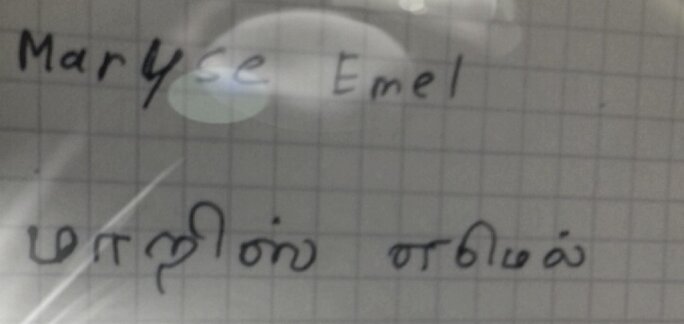 Maryse Emel
மாறிஸ் எமெல்